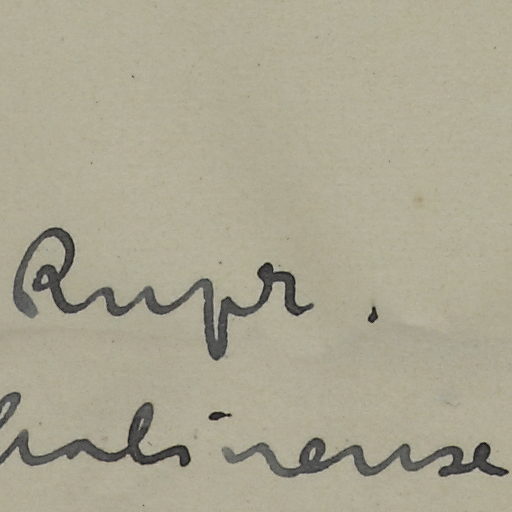 Rupr.
halinense